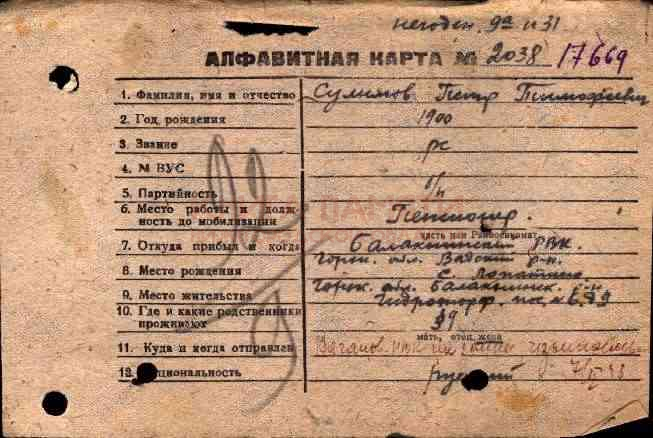 негоден. 9а и 31
АЛФАВИТНАЯ КАРТА № 2038 17669
1. Фамилия, имя и отчество Сулимов Петр Тимофеевич
2. Год рождения 1900
3. Звание рс
4. № ВУС
5. Партийность б/п
6. Место работы и долж-
ность до мобилизации Пенсионер.
часть или Райвоенкомат
7. Откуда прибыл и когда Балахнинский РВК.
горьк. обл. Вадский р-н.
8. Место рождения с. Лопатино
9. Место жительства горьк. обл. Балахнинск. р-н
10. Где и какие родственники Гидроторф. пос. №
проживают
мать, отец, жена
11. Куда и когда отправлен
12. Национальность русский